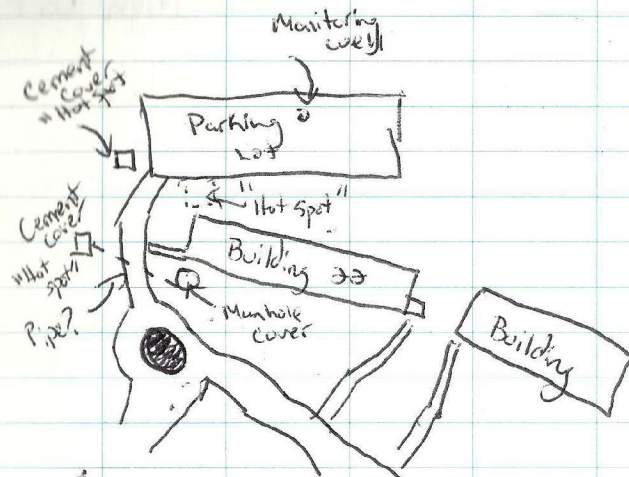 Monitoring
well
Cement
Cover
"Hot spot"
Parking
Lot
"Hot spot"
Cement
Cover
"Hot
spot"
Pipe?
Building 22
Manhole
cover
Building